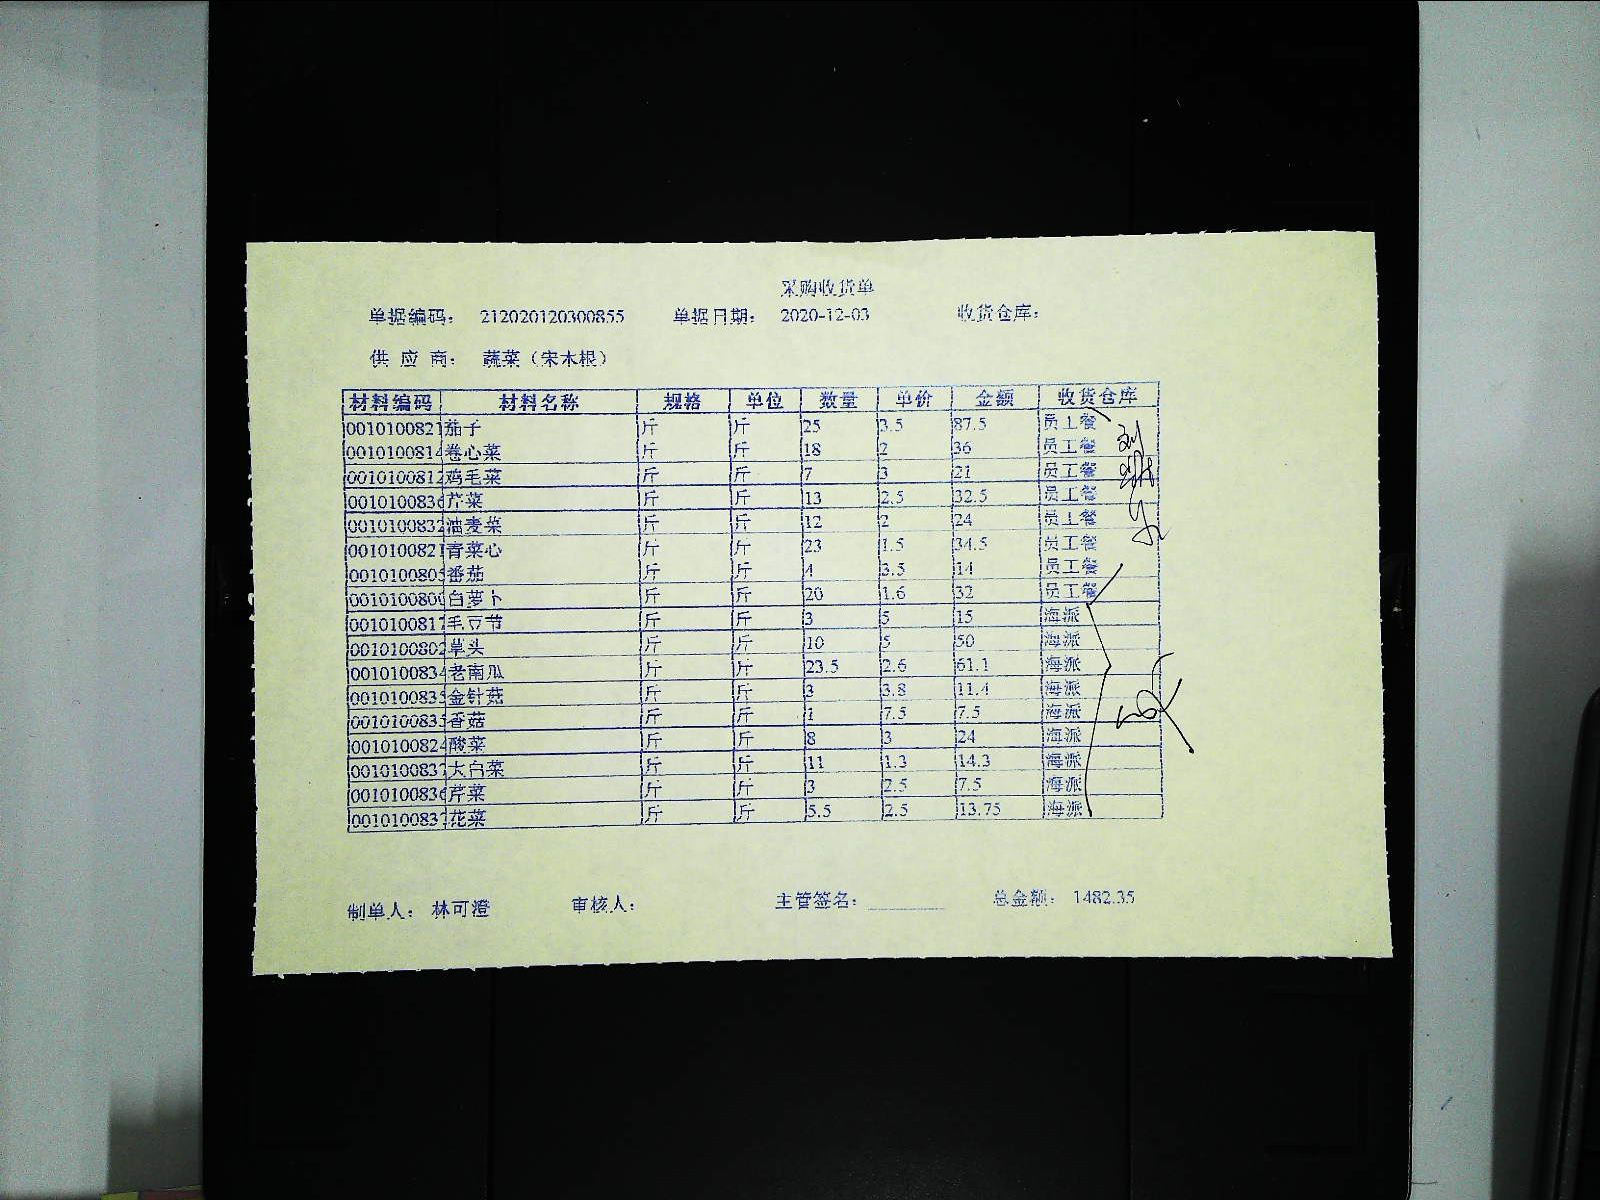 采购收货单
单据编码： 212020120300855 单据日期： 2020-12-03 收货仓库：
供 应 商： 蔬菜（宋木根）
材料编码 材料名称 规格 单位 数量 单价 金额 收货仓库
0010100821 茄子 斤 斤 25 3.5 87.5 员工餐
0010100814 卷心菜 斤 斤 18 2 36 员工餐
0010100812 鸡毛菜 斤 斤 7 3 21 员工餐
0010100836 芹菜 斤 斤 13 2.5 32.5 员工餐
0010100832 油麦菜 斤 斤 12 2 24 员工餐
0010100821 青菜心 斤 斤 23 1.5 34.5 员工餐
0010100805 番茄 斤 斤 4 3.5 14 员工餐
0010100800 白萝卜 斤 斤 20 1.6 32 员工餐
0010100817 毛豆节 斤 斤 3 5 15 海派
0010100802 草头 斤 斤 10 5 50 海派
0010100834 老南瓜 斤 斤 23.5 2.6 61.1 海派
0010100835 金针菇 斤 斤 3 3.8 11.4 海派
0010100835 香菇 斤 斤 1 7.5 7.5 海派
0010100824 酸菜 斤 斤 8 3 24 海派
0010100837 大白菜 斤 斤 11 1.3 14.3 海派
0010100836 芹菜 斤 斤 3 2.5 7.5 海派
0010100837 花菜 斤 斤 5.5 2.5 13.75 海派
制单人： 林可澄 审核人： 主管签名：________ 总金额： 1482.35